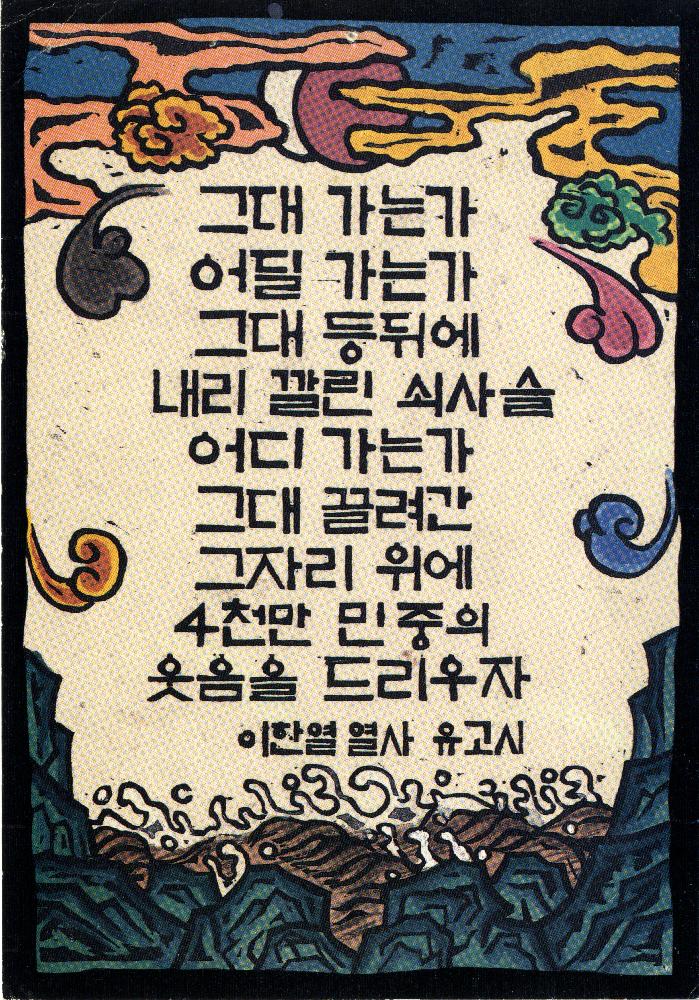 그대 가는가
어딜 가는가
그대 등뒤에
내리 깔린 쇠사슬
어디 가는가
그대 끌려간
그자리 위에
4천만 민중의
웃음을 드리우자
이한열 열사 유고시